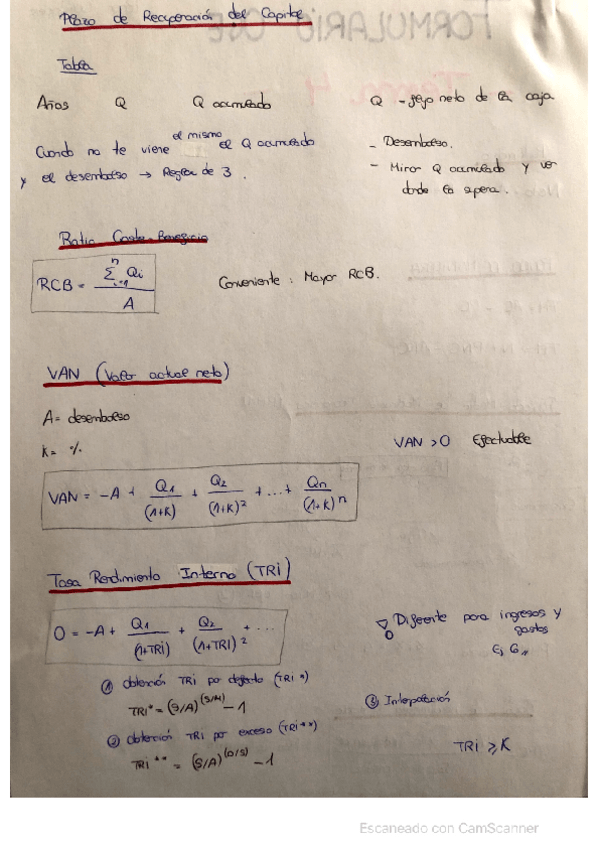 Plazo de Recuperación del Capital
Tabla
Años Q Q acumulado
Q - flujo neto de la caja
Cuando no te viene el mismo el Q acumulado
y el desembolso → Regla de 3.
- Desembolso.
- Mirar Q acumulado y ver
donde la supera.
Ratio Coste-Beneficio
RCB = n Σ i=1 Qi / A
Conveniente: Mayor RCB.
VAN (Valor actual neto)
A = desembolso
K = %
VAN > 0 Efectuable
VAN = -A + Q1/(1+K) + Q2/(1+K)^2 + ... + Qn/(1+K)^n
Tasa Rendimiento Interno (TRi)
0 = -A + Q1/(1+TRi) + Q2/(1+TRi)^2 + ...
Diferente para ingresos y
gastos
① obtención TRi por defecto (TRi*)
TRi* = (S/A)^(S/M) - 1
③ Interpolación
② obtención TRi por exceso (TRi**)
TRi** = (S/A)^(D/S) - 1
TRi ≥ K
Escaneado con CamScanner